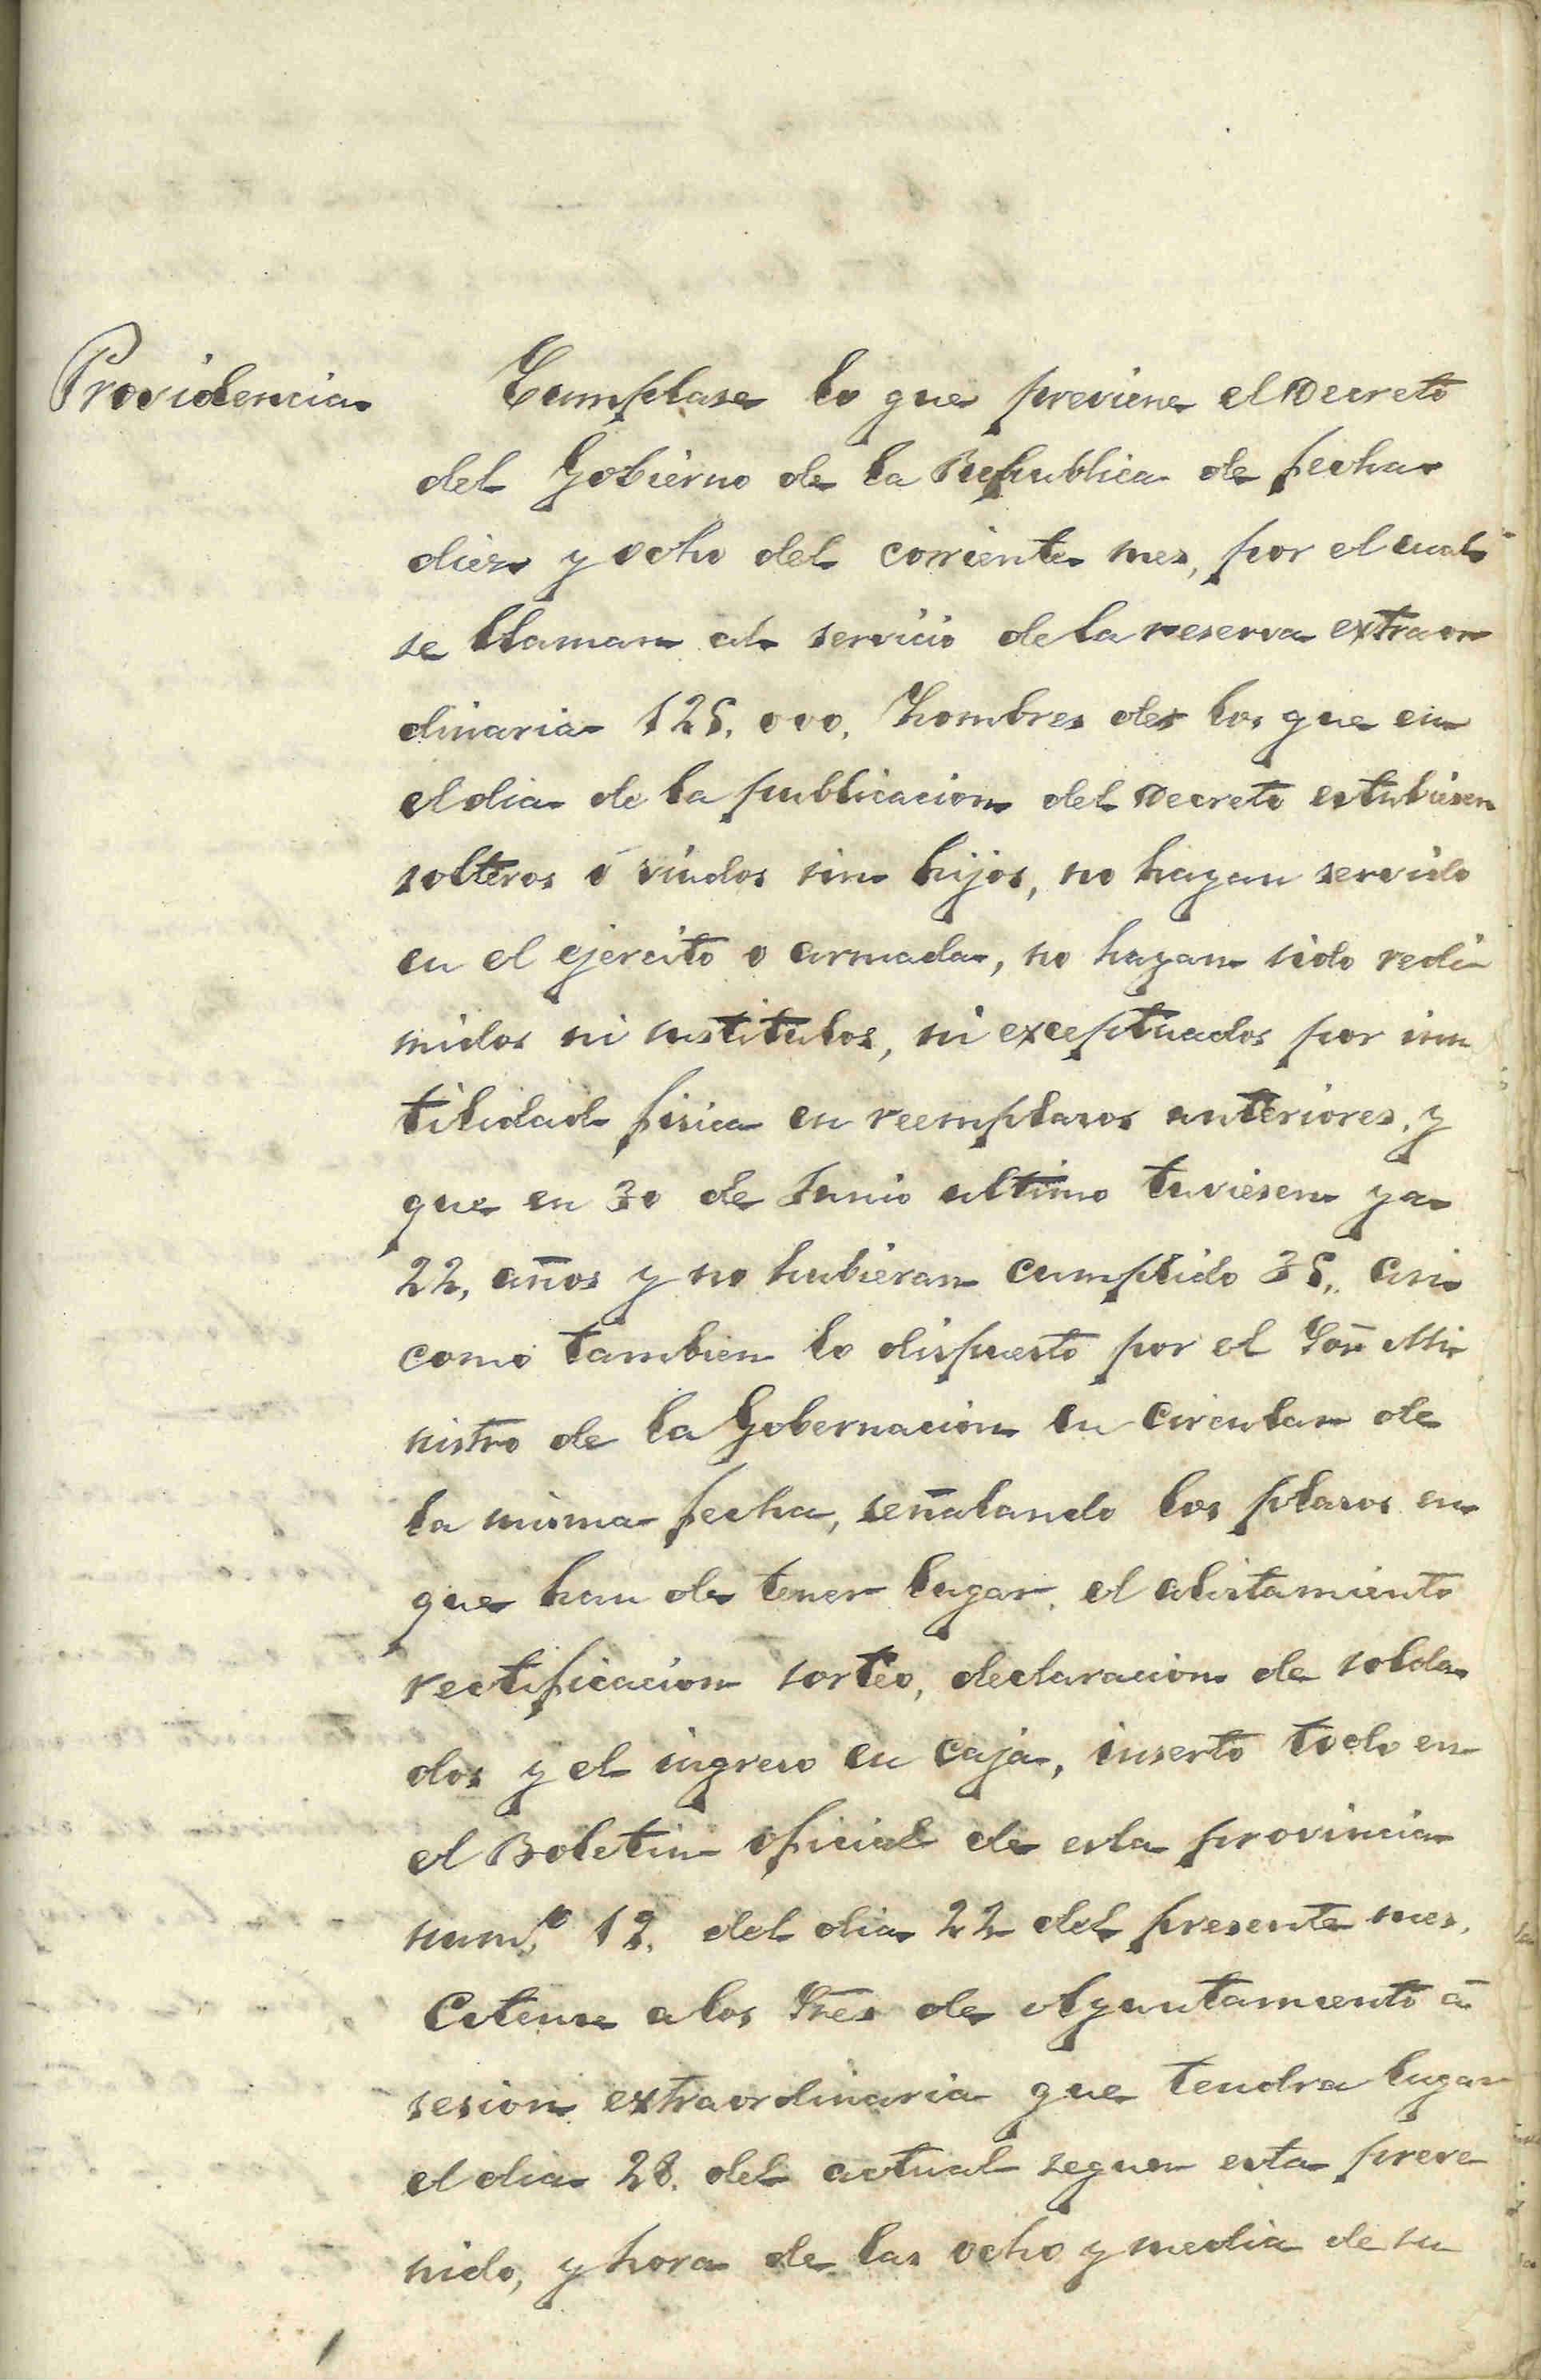 Providencia
Cumplase lo que previene el Decreto
del Gobierno de la Republica de fecha
diez y ocho del corriente mes, por el cual
se llaman al servicio de la reserva extraor
dinaria 125.000. hombres de los que en
el dia de la publicacion del Decreto estubiesen
solteros ó viudos sin hijos, no hayan servido
en el ejercito o armada, no hayan sido redi
midos ni sustitutos, ni exceptuados por inu
tilidad fisica en reemplazos anteriores, y
que en 30 de Junio ultimo tuviesen ya
22, años y no hubieran cumplido 35,, asi
como tambien lo dispuesto por el Sor. Mi
nistro de la Gobernacion en circular de
la misma fecha, señalando los plazos en
que han de tener lugar. el alistamiento
rectificacion sorteo, declaracion de solda
dos y el ingreso en caja, inserto todo en
el Boletin oficial de esta provincia
num.º 12. del dia 22 del presente mes.
Citense a los Sres de Ayuntamiento á
sesion extraordinaria que tendra lugar
el dia 28. del actual segun esta preve
nido, y hora de las ocho y media de su